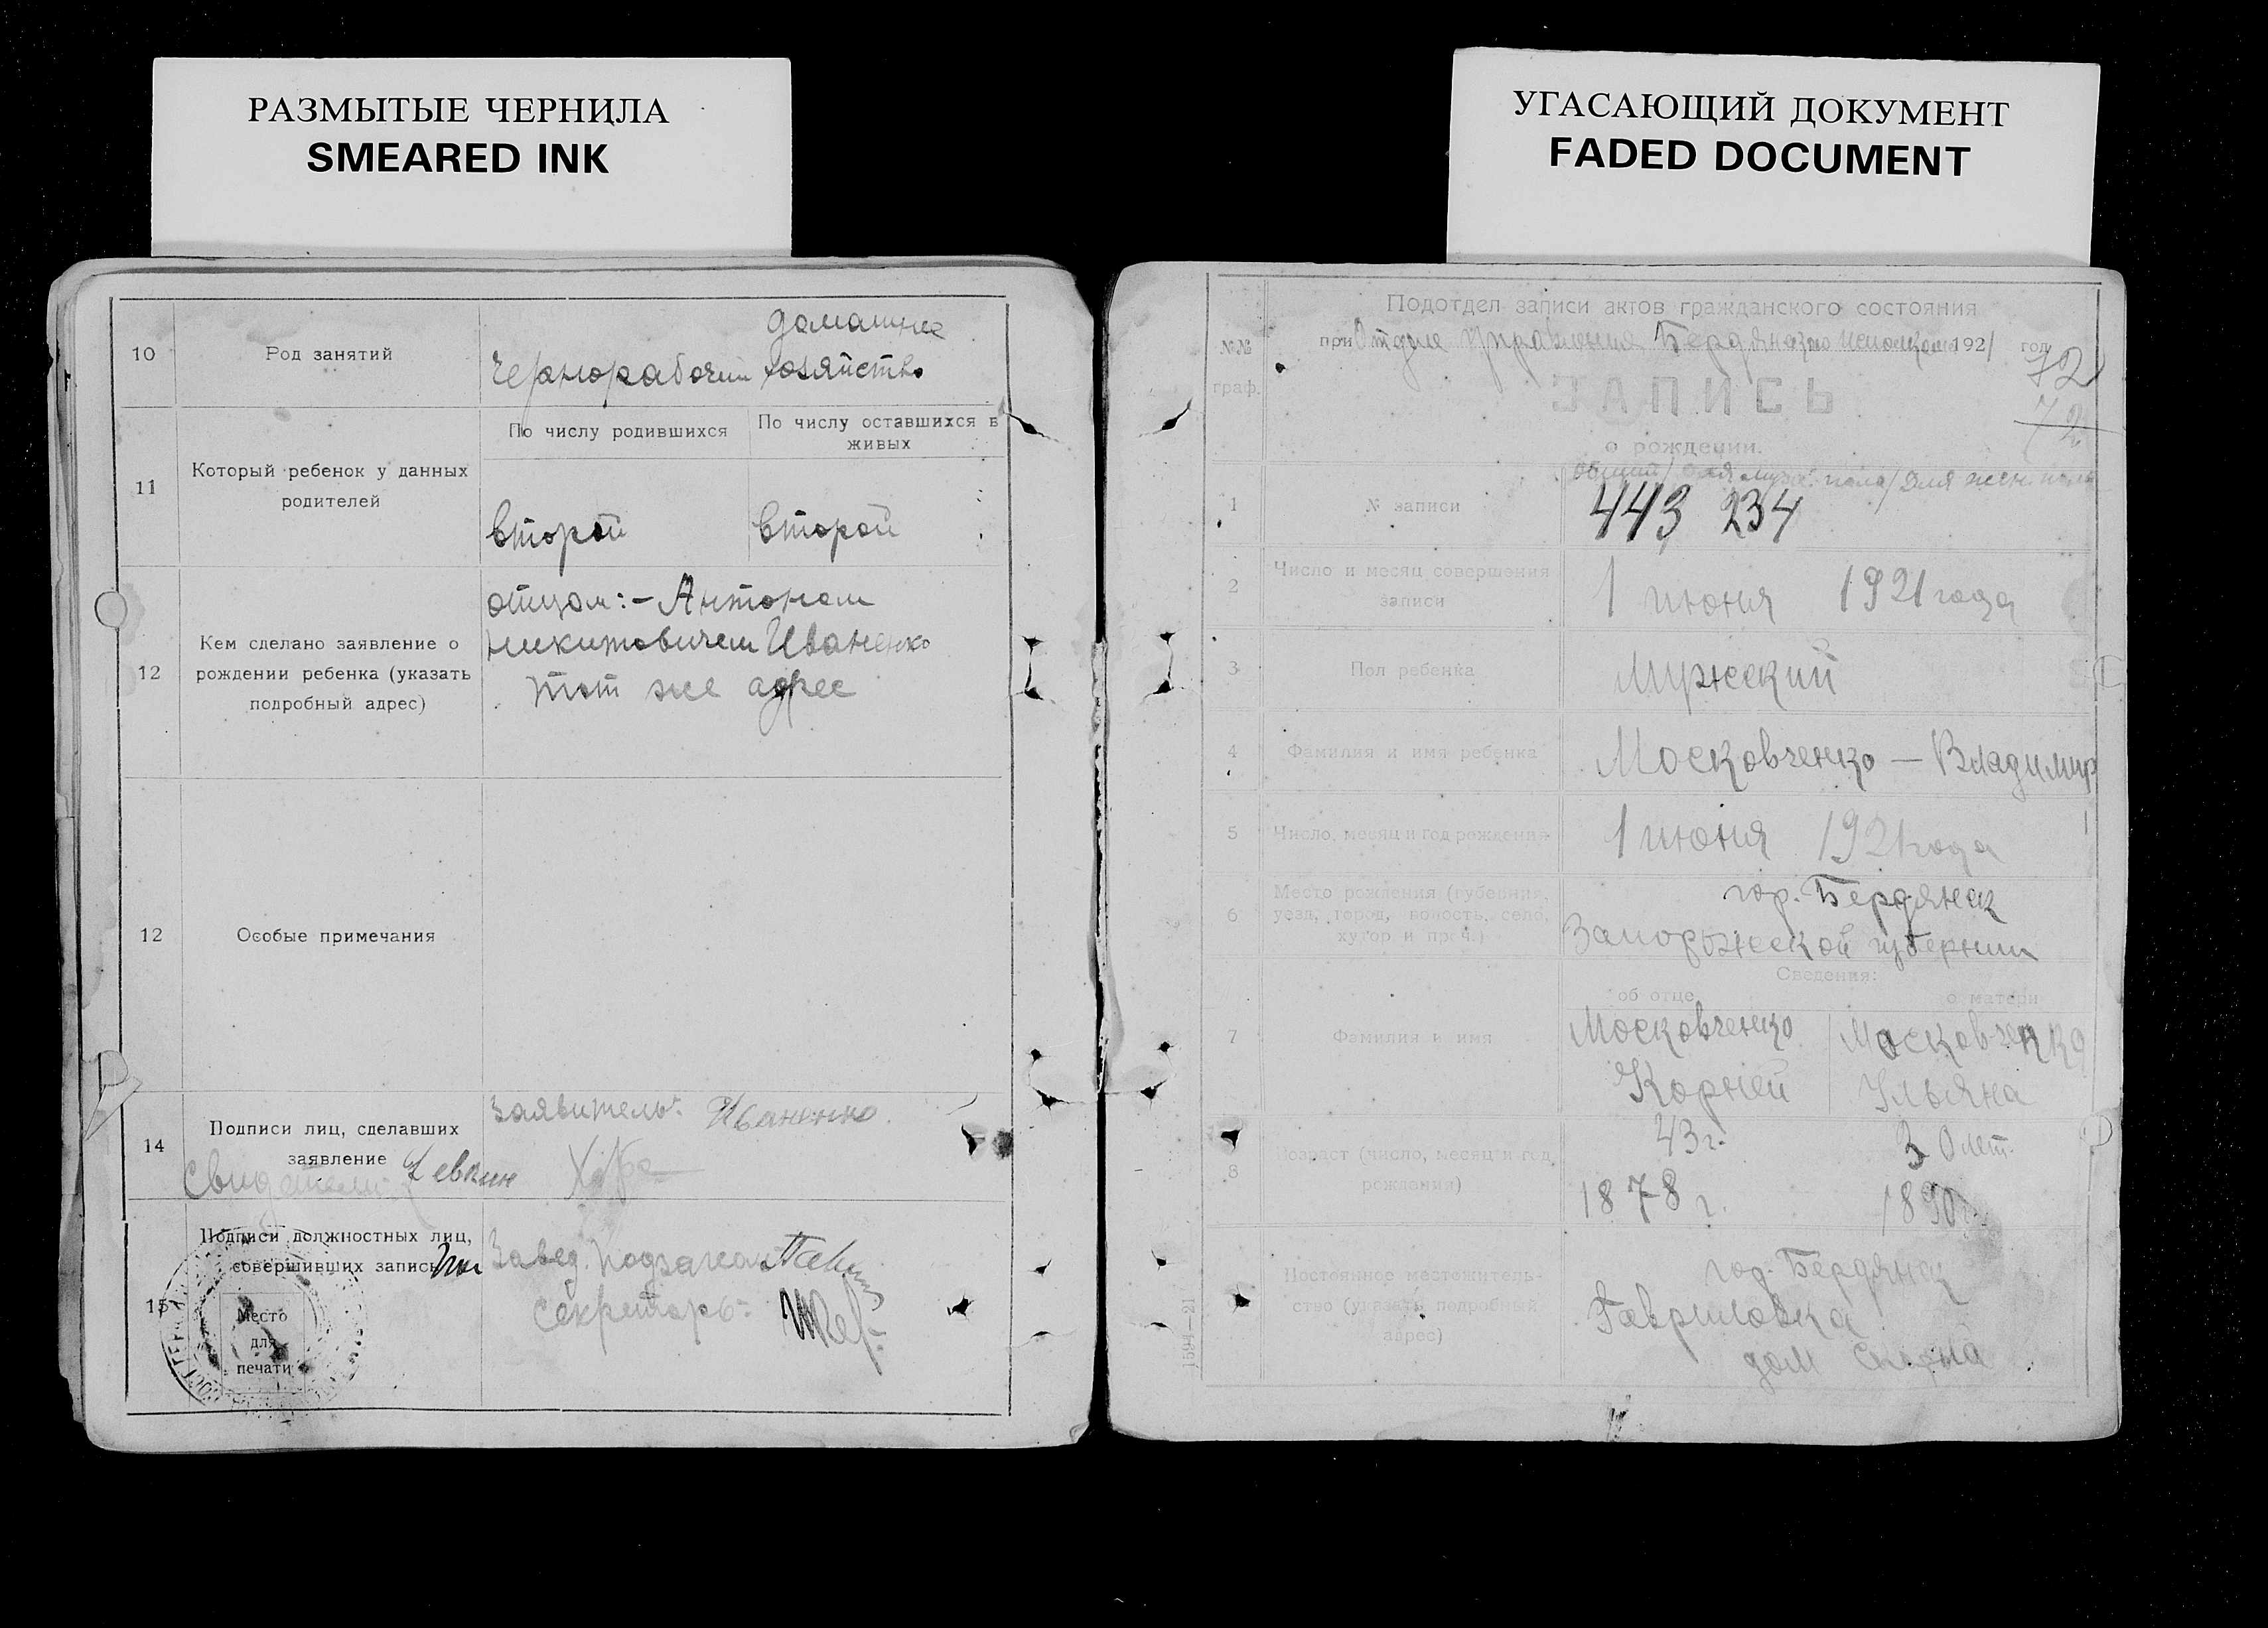 РАЗМЫТЫЕ ЧЕРНИЛА
SMEARED INK
10
Род занятий
домашнее
Чернорабочий хозяйство
11
Который ребенок у данных
родителей
По числу родившихся
По числу оставшихся в
живых
второй
второй
12
Кем сделано заявление о
рождении ребенка (указать
подробный адрес)
отцом:- Антоном
Никитовичем Иваненко
тот же адрес
12
Особые примечания
14
Подписи лиц, сделавших
заявление
заявитель: Иваненко
Свидетели:
15
Подписи должностных лиц,
совершивших запись
Завед.
Секретарь:
Место
для
печати
УГАСАЮЩИЙ ДОКУМЕНТ
FADED DOCUMENT
№№
граф.
Подотдел записи актов гражданского состояния
при Отделе Управления 1921 год
72
72
ЗАПИСЬ
о рождении.
общий/для муж. пола/для жен. пола
1
№ записи
443 234
2
Число и месяц совершения
записи
1 июня 1921 года
3
Пол ребенка
Мужский
4
Фамилия и имя ребенка
Московченко — Владимир
5
Число, месяц и год рождения
1 июня 1921 года
6
Место рождения (губерния,
уезд, город, волость, село,
хутор и проч.)
гор. Бердянск
Запорожской губернии
Сведения:
об отце
о матери
7
Фамилия и имя
Московченко
Корней
Московченко
Ульяна
8
Возраст (число, месяц и год
рождения)
43 г.
1878 г.
30 лет.
1890 г.
Постоянное местожитель-
ство (указать подробный
адрес)
гор. Бердянск
Гавриловка
дом
1594—21